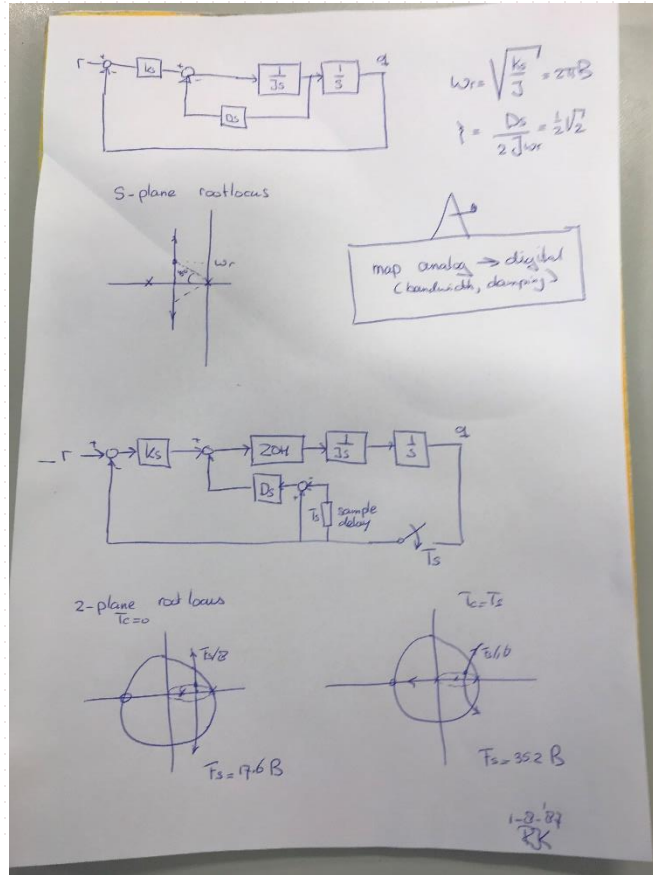 r + - ks + - 1/Js 1/s q
Ds
ωr = √(ks/J) = 2πB
ζ = Ds/(2Jωr) = ½√2
S-plane rootlocus
ωr
map analog → digital
(bandwidth, damping)
r + - ks + - ZOH 1/Js 1/s q
Ds + -
Ts sample
delay
Ts
Z-plane root locus
Tc=0
Tc=Ts
Fs=17.6 B
Fs=35.2 B
1-8-'87
RK